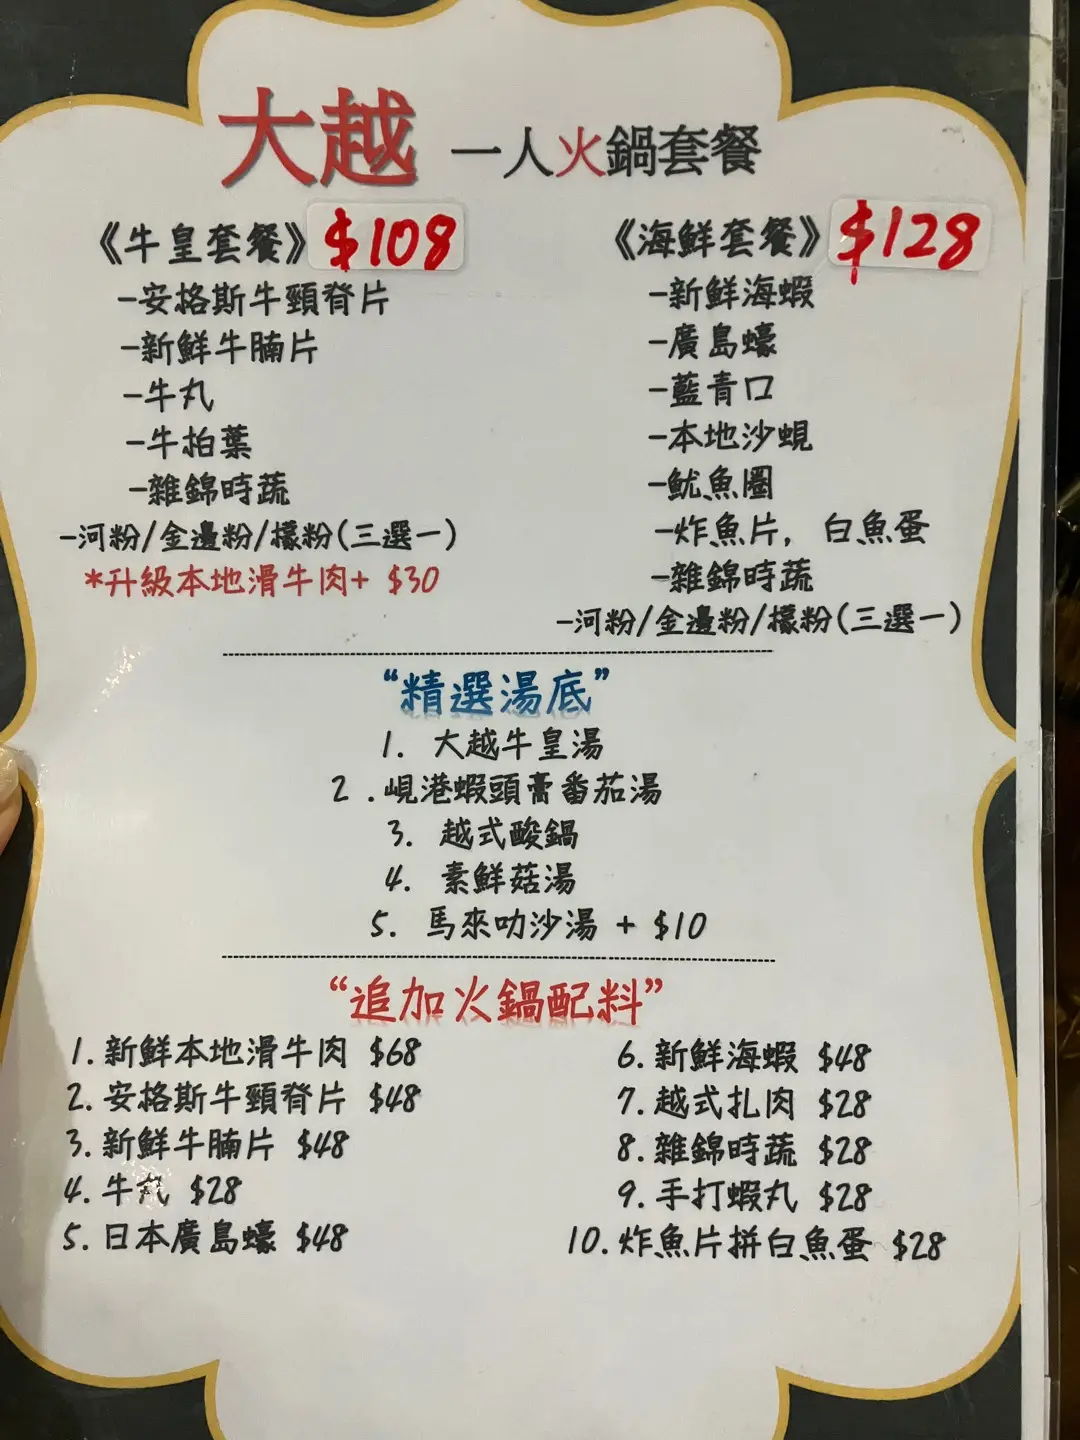 大越 一人火鍋套餐
《牛皇套餐》$108
-安格斯牛頸脊片
-新鮮牛腩片
-牛丸
-牛柏葉
-雜錦時蔬
-河粉/金邊粉/檬粉(三選一)
*升級本地滑牛肉+ $30
《海鮮套餐》$128
-新鮮海蝦
-廣島蠔
-藍青口
-本地沙蜆
-魷魚圈
-炸魚片，白魚蛋
-雜錦時蔬
-河粉/金邊粉/檬粉(三選一)
“精選湯底”
1. 大越牛皇湯
2 .峴港蝦頭膏番茄湯
3. 越式酸鍋
4. 素鮮菇湯
5. 馬來叻沙湯 + $10
“追加火鍋配料”
1. 新鮮本地滑牛肉 $68
2. 安格斯牛頸脊片 $48
3. 新鮮牛腩片 $48
4. 牛丸 $28
5. 日本廣島蠔 $48
6. 新鮮海蝦 $48
7. 越式扎肉 $28
8. 雜錦時蔬 $28
9. 手打蝦丸 $28
10. 炸魚片拼白魚蛋 $28